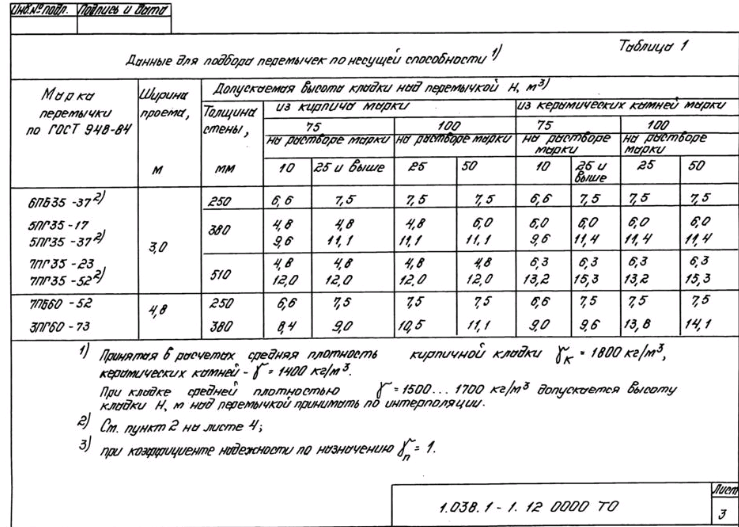 Инв.№ подл. Подпись и дата
Таблица 1
Данные для подбора перемычек по несущей способности 1)
Марка перемычки по ГОСТ 948-84 Ширина проема, м Толщина стены, мм Допускаемая высота кладки над перемычкой Н, м 3)
из кирпича марки из керамических камней марки
75 100 75 100
на растворе марки на растворе марки на растворе марки на растворе марки
10 25 и выше 25 50 10 25 и выше 25 50
6ПБ35-37 2) 3,0 250 6,6 7,5 7,5 7,5 6,6 7,5 7,5 7,5
5ПГ35-17 380 4,8 4,8 4,8 6,0 6,0 6,0 6,0 6,0
5ПГ35-37 2) 9,6 11,1 11,1 11,1 9,6 11,4 11,4 11,4
7ПГ35-23 510 4,8 4,8 4,8 4,8 6,3 6,3 6,3 6,3
7ПГ35-52 2) 12,0 12,0 12,0 12,0 13,2 15,3 13,2 15,3
7ПБ60-52 4,8 250 6,6 7,5 7,5 7,5 6,6 7,5 7,5 7,5
3ПГ60-73 380 8,4 9,0 10,5 11,1 9,0 9,6 13,8 14,1
1) Принятая в расчетах средняя плотность кирпичной кладки γк = 1800 кг/м³,
керамических камней - γ = 1400 кг/м³.
При кладке средней плотностью γ = 1500... 1700 кг/м³ допускается высоту
кладки Н, м над перемычкой принимать по интерполяции.
2) См. пункт 2 на листе 4;
3) при коэффициенте надежности по назначению γn = 1.
1.038.1-1.12 0000 ТО
Лист
3